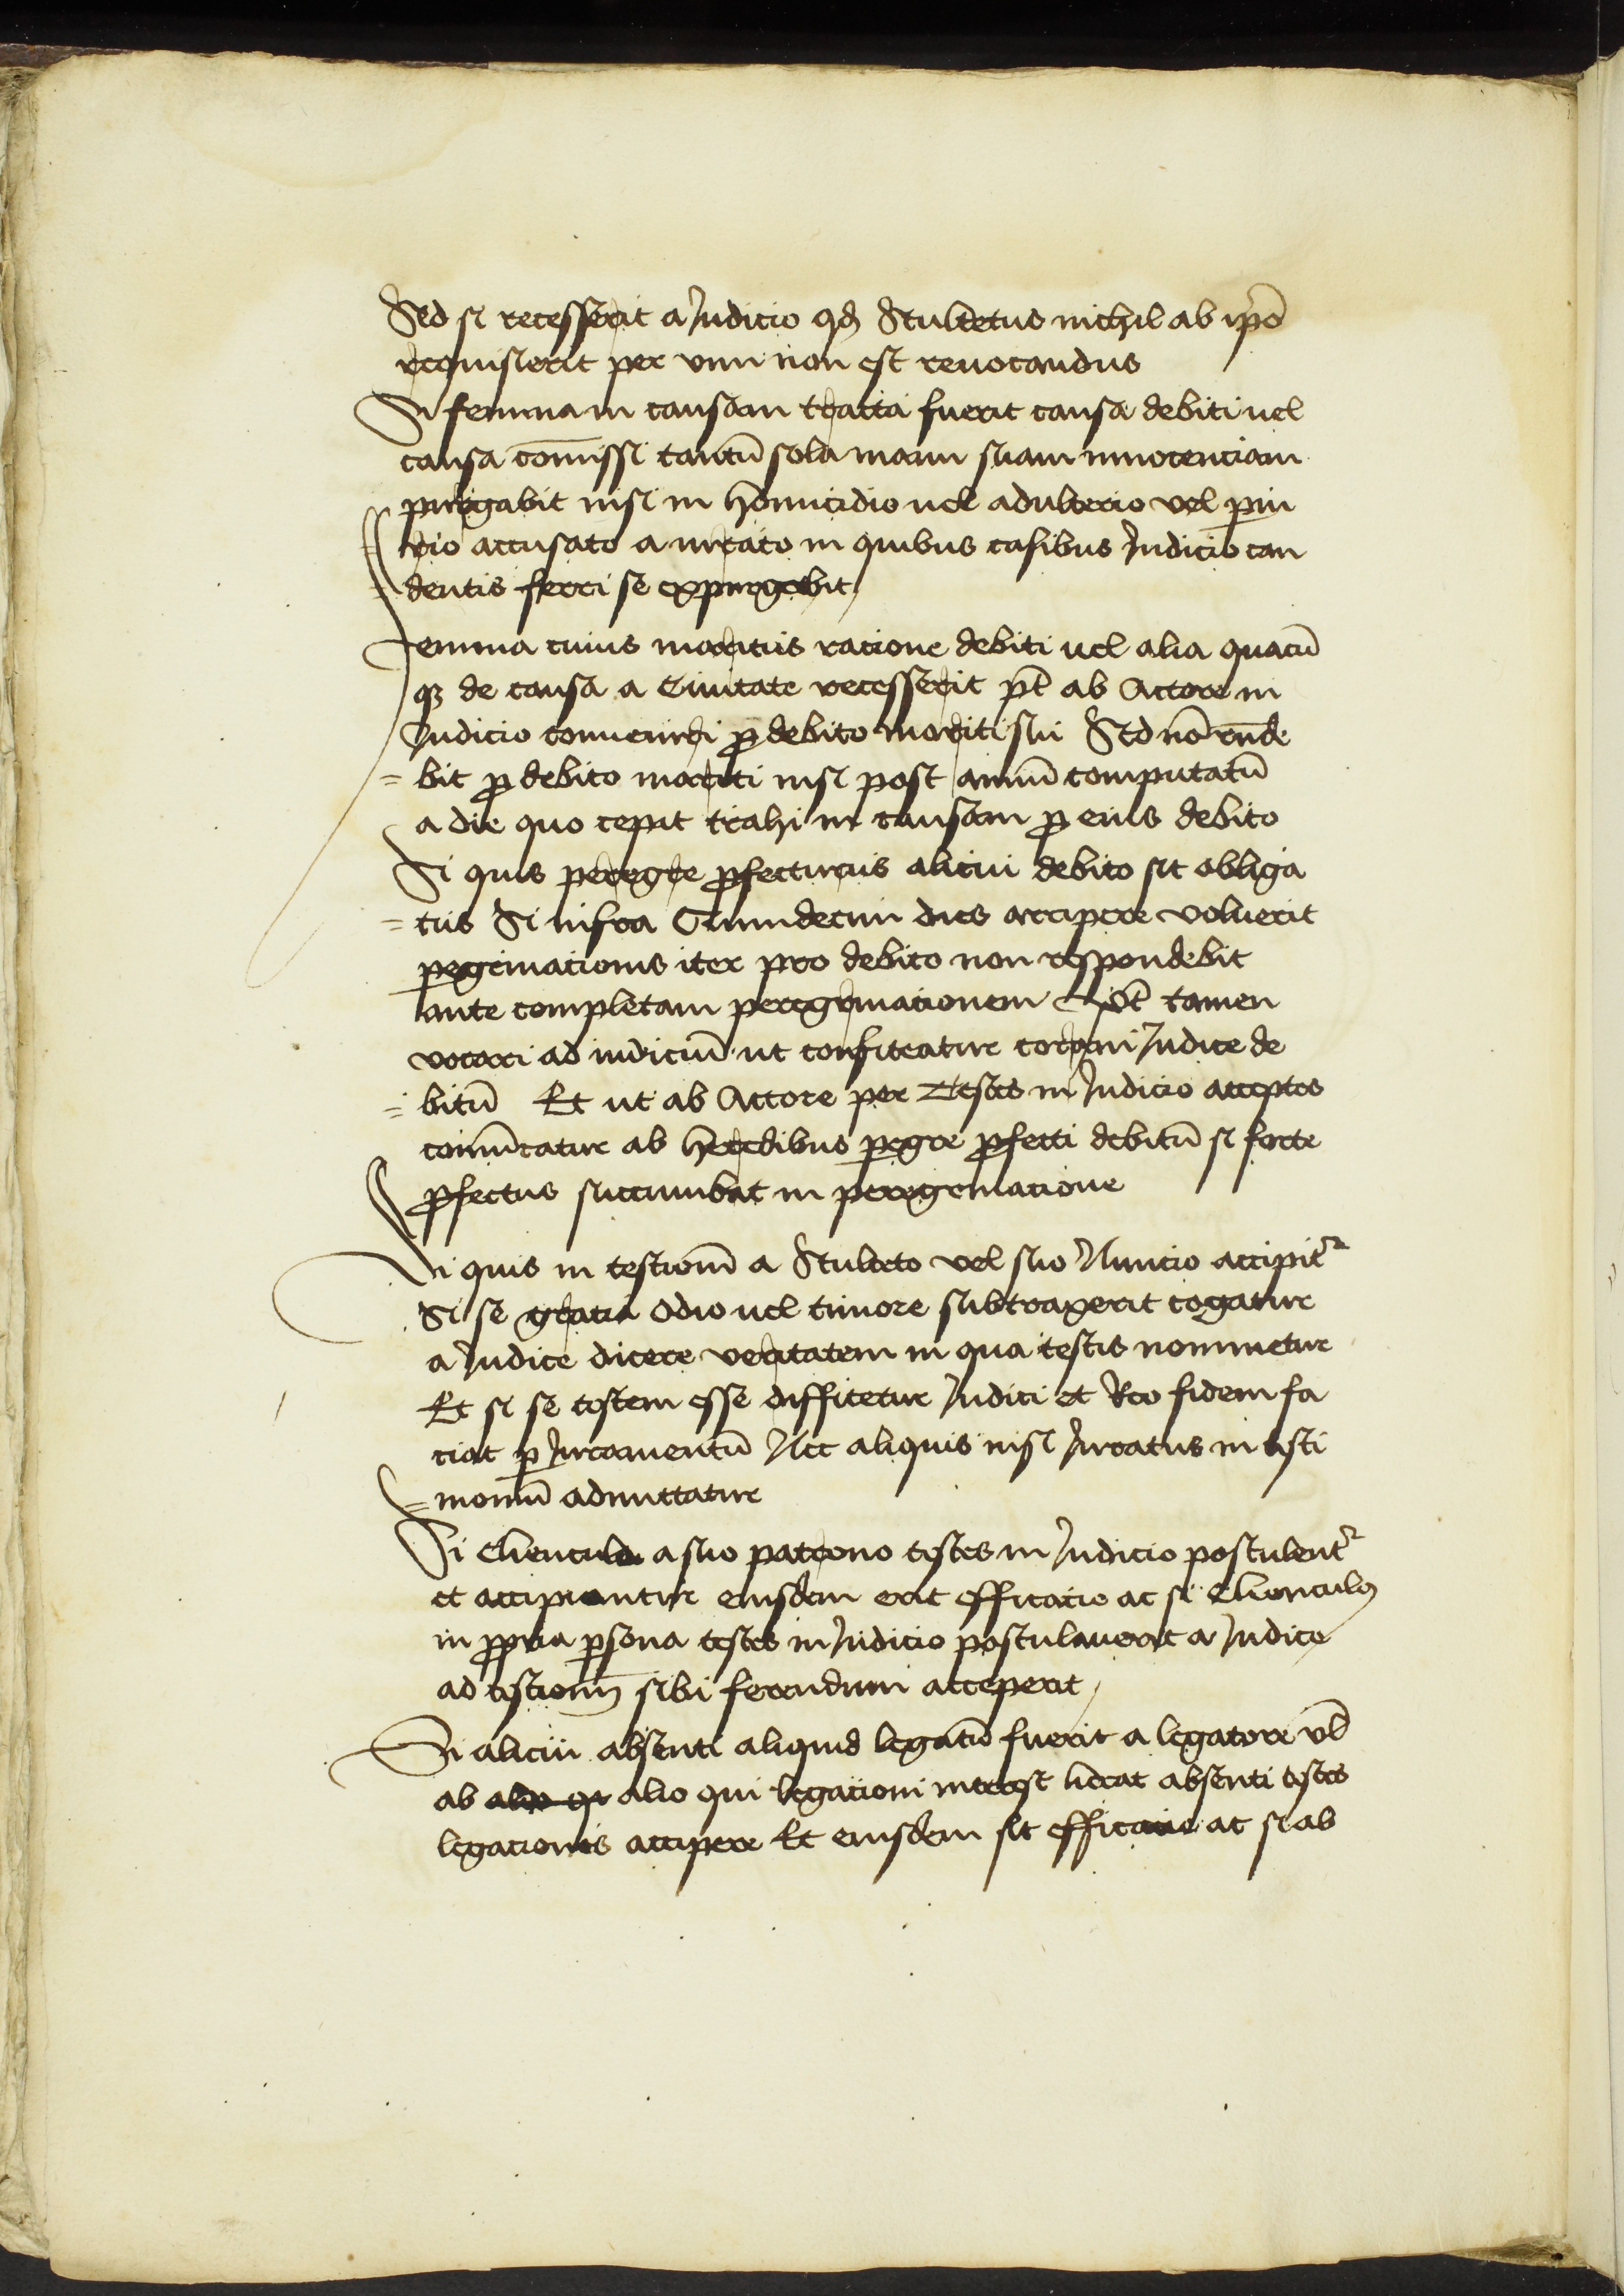 Sed si recesserit a Judicio qd Scultetus nichil ab ipo
requisierit per vim non est reuocandus
Si femina in causam tracta fuerit causa debiti uel
causa comissi tantū sola manu suam innocenciam
purgabit nisi in homicidio uel adulterio vel
accusato a in quibus casibus Judicio can
dentis ferri se expurgabit
Femina cuius maritus racione debiti uel alia quacū
qz de causa a Ciuitate recesserit pt̄ ab Actore in
Judicio conueniri ꝓ debito mariti sui Sed nō rn̄de
= bit ꝓ debito mariti nisi post annū computatū
a die quo cepit trahi in causam ꝓ eius debito
Si quis peregre ꝓfecturus alicui debito sit obliga
= tus Si infra Quindecim dies arripere voluerit
ꝑegrinacionis iter pro debito non respondebit
ante completam peregrinacionem Pōt tamen
vocari ad iudiciū ut confiteatur coram Judice de
= bitū Et ut ab Actore per Testes in Judicio acceptos
conuīcatur ab heredibus ꝑegre ꝓfecti debitū si forte
ꝓfectus succumbat in peregrinacione
Si quis in testioniū a Sculteto vel suo Nuncio accipit^r
Si se gracia odio uel timore subtraxerit cogatur
a Judice dicere veritatem in qua testis nominetur
Et si se testem esse diffitetur Judici et Reo fidem fa
ciat ꝑ Juramentū Nec aliquis nisi Juratus in testi
= moniū admittatur
Si Clienculo a suo patrono testes in Judicio postulent^r
et accipiantur eiusdem erit efficacie ac si Clienculus
in ꝓpria ꝑsona testes in Judicio postulauerit a Judice
ad testioniū sibi ferendum acceperit
Si alicui absenti aliquid legatū fuerit a legatore vl
ab alio qi alio qui legacioni interest liceat absenti testes
legacionis accipere Et eiusdem sit efficacie ac si ab